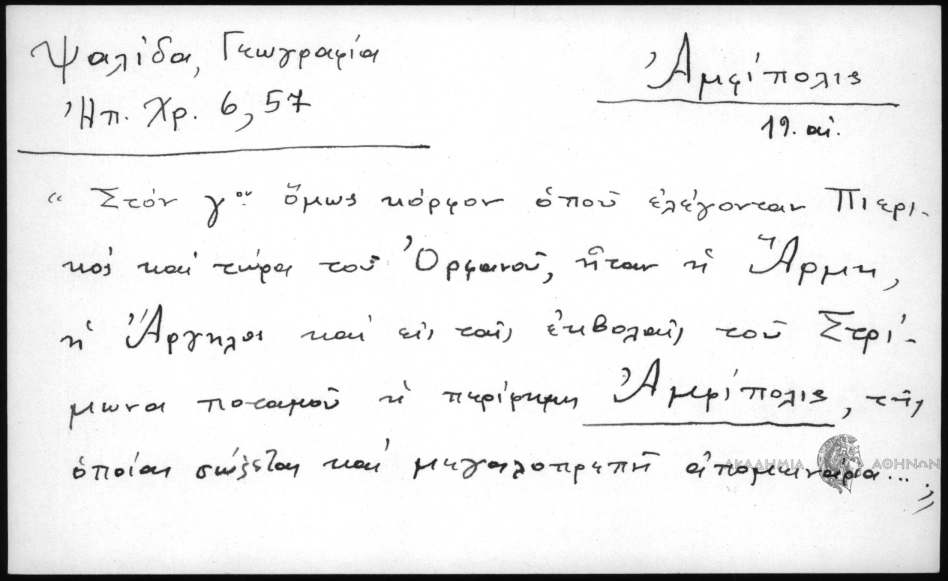 Ψαλίδα, Γεωγραφία
Ἠπ. Χρ. 6, 57
Ἀμφίπολις
19. αἰ.
“ Στὸν γ<sup>ον</sup> ὅμως κόρφον ὁποῦ ἐλέγονταν Πιερι-
κὸς καὶ τώρα τοῦ Ὀρφανοῦ, ἦταν ἡ Ἄρμη,
ἡ Ἄργηλος καὶ εἰς ταῖς ἐκβολαῖς τοῦ Στρί-
μωνα ποταμοῦ ἡ περίφημη Ἀμφίπολις, τῆς
ὁποίας σώζεται καὶ μεγαλοπρεπῆ ἀπομεινάρια... ”
ΑΚΑΔΗΜΙΑ ΑΘΗΝΩΝ